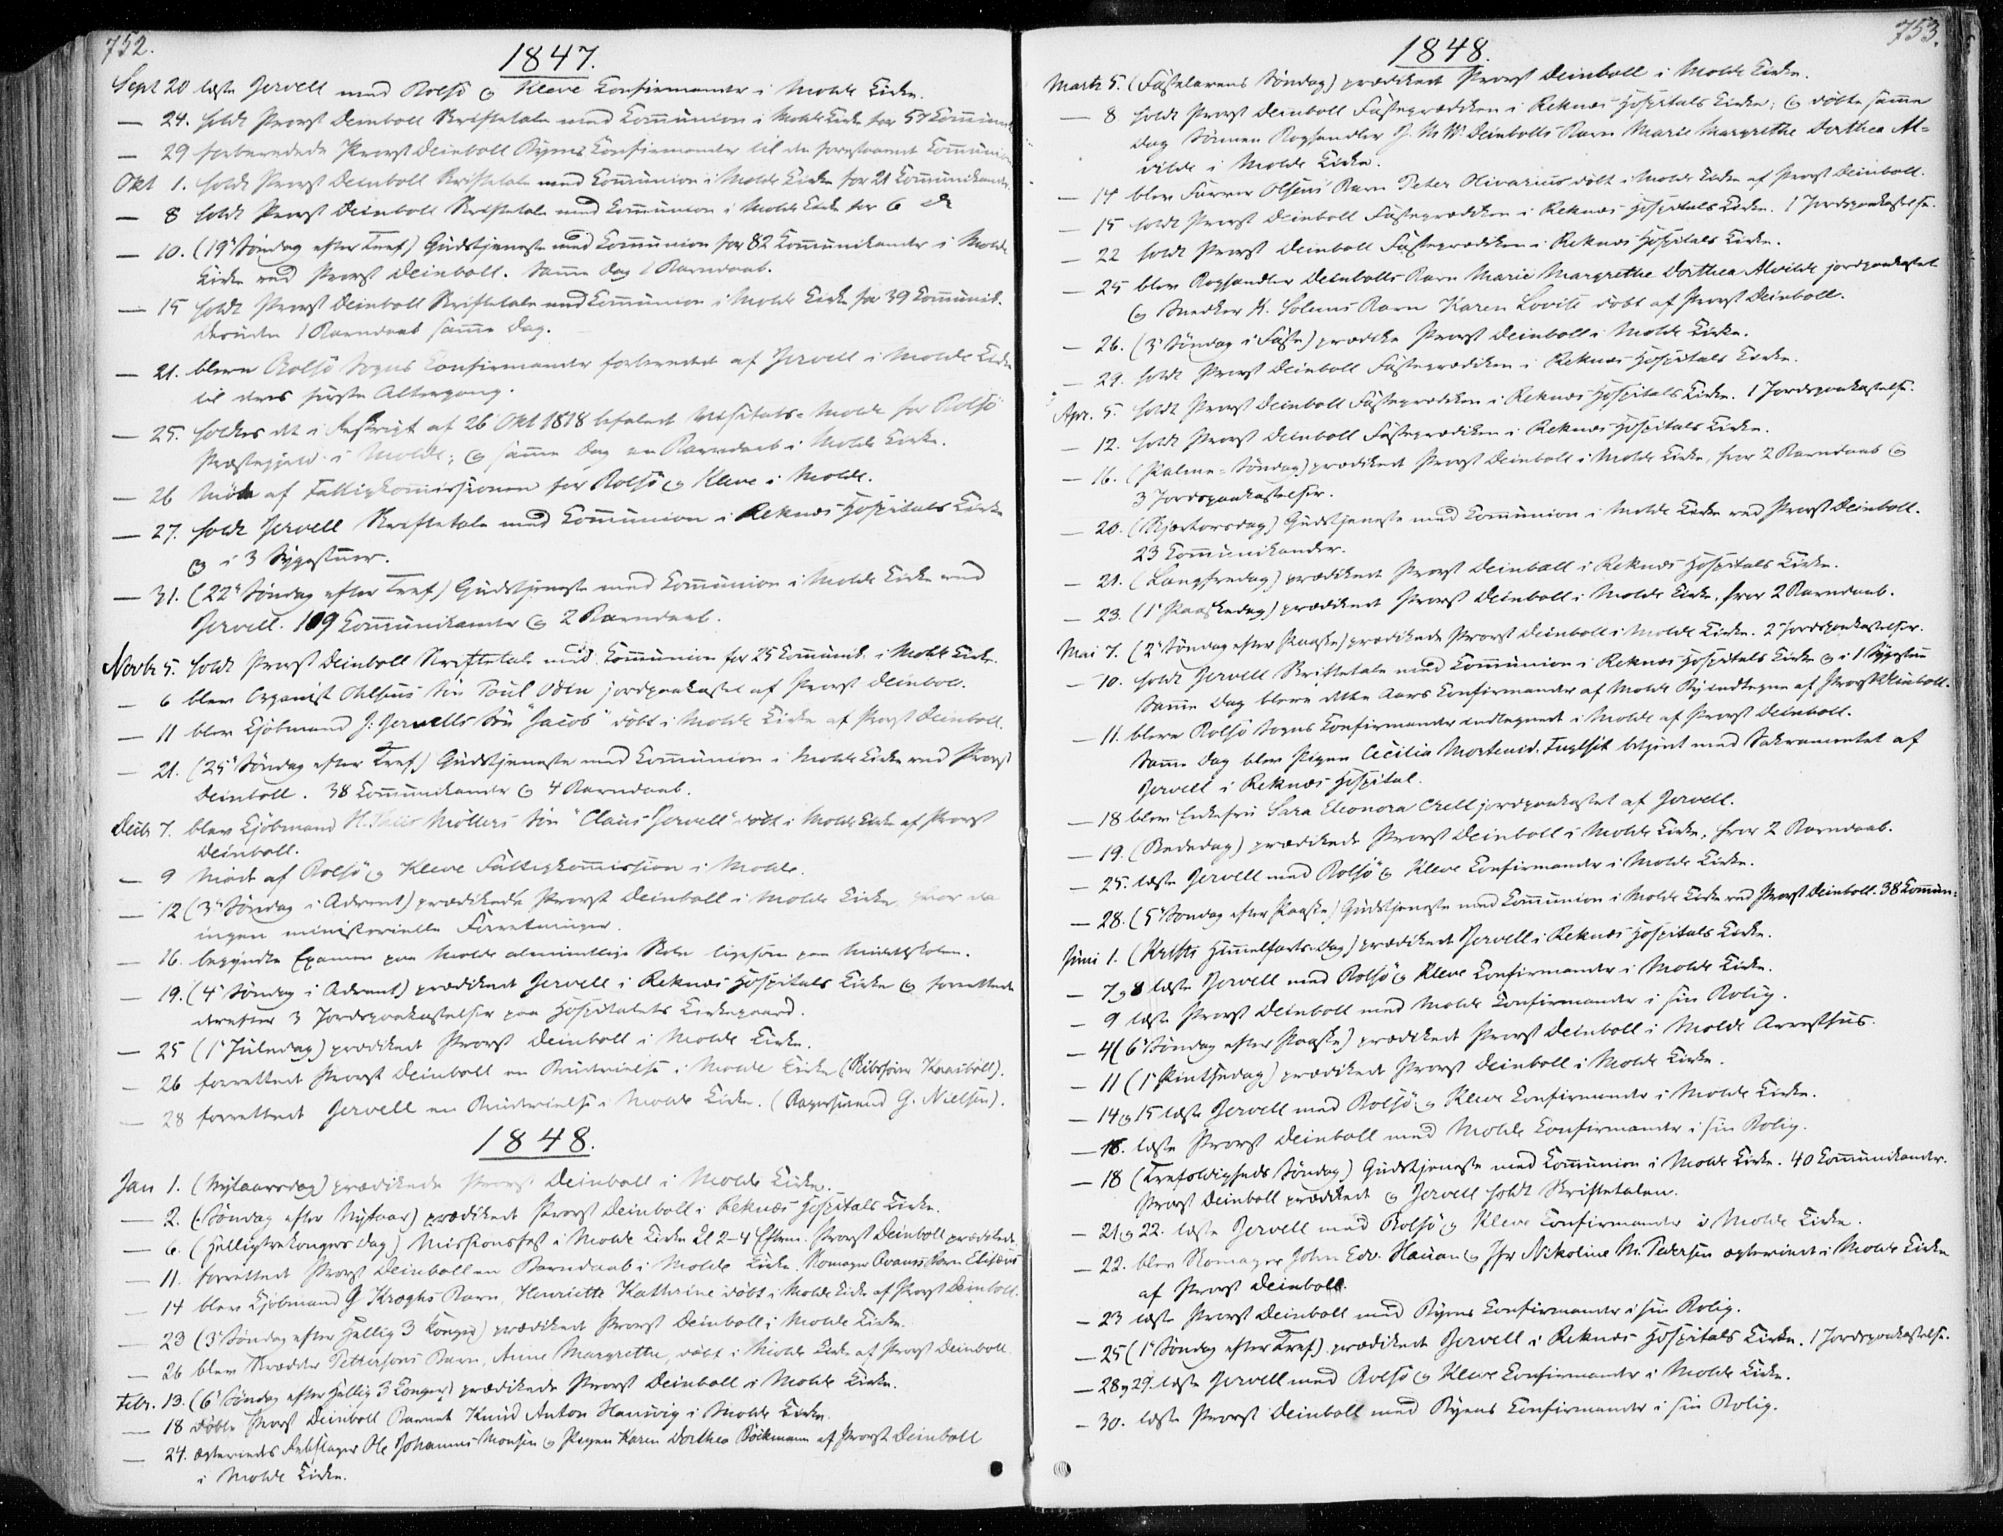 752.
1847.
Sept 20 læste Jervell med Bolsö og Kleve Konfirmander i Molde Kirke.
— 24. holdt Provst Deinboll Skriftetale med Communion i Molde Kirke for 57 Communik.
— 29 forberedede Provst Deinboll Byens Confirmander til den forestaaende Communion
Okt 1. holdt Provst Deinboll Skriftetale med Communion i Molde Kirke for 21 Communikander.
— 8 holdt Provst Deinboll Skriftetale med Communion i Molde Kirke for 6 do
— 10. (19de Söndag efter Tref.) Gudstjeneste med Communion for 82 Communikander i Molde
Kirke ved Provst Deinboll. Samme Dag 1 Barndaab.
— 15 holdt Provst Deinboll Skriftetale med Communion i Molde Kirke for 39 Communik.
desuden 1 Barndaab samme Dag.
— 21. bleve Bolsö Sogns Confirmander forberedet af Jervell i Molde Kirke
til deres første Altergang.
— 25. holdtes det i Reskript af 26 Okt 1818 befalede Møde for Bolsö
Præstegjeld i Molde; og samme Dag en Barndaab i Molde Kirke.
— 26 Möde af Fattigkommissionen for Bolsö og Kleve i Molde.
— 27. holdt Jervell Skriftetale med Communion i Reknæs Hospitals Kirke
og i 3 Sygestuer.
— 31. (22de Söndag efter Tref) Gudstjeneste med Communion i Molde Kirke ved
Jervell. 109 Communikanter og 2 Barndaab.
Novbr 5. holdt Provst Deinboll Skriftetale med Communion for 25 Communik. i Molde Kirke.
— 6 blev Organist Ohlsens Sön Poul Oden jordpaakastet af Provst Deinboll.
— 11 blev Kjöbmand J. Jervells Sön "Jacob" döbt i Molde Kirke af Provst Deinboll.
— 21. (25de Söndag efter Tref.) Gudstjeneste med Communion i Molde Kirke ved Provst
Deinboll. 38 Communikander og 4 Barndaab.
Decbr 7. blev Kjöbmand Möllers Sön "Claus Jervell" döbt i Molde Kirke af Provst
Deinboll.
— 9 Möde af Bolsö og Kleve Fattigkommission i Molde.
— 12 (3de Söndag i Advent) prædikede Provst Deinboll i Molde Kirke, hvor da
ingen ministerielle Forretninger.
— 16. begyndte Examen paa Molde almindelige Skole ligesom paa Middelskolen.
— 19. (4de Söndag i Advent) prædikede Jervell i Reknæs Hospitals Kirke og forrettede
derefter 3 Jordspaakastelser paa Hospitalets Kirkegaard.
— 25 (1ste Juledag) prædikede Provst Deinboll i Molde Kirke.
— 26 forrettede Provst Deinboll en Brudevielse i Molde Kirke
— 28 forrettede Jervell en Brudevielse i Molde Kirke. (G. Nielsen).
1848.
Jan 1. (Nytaarsdag) prædikede Provst Deinboll i Molde Kirke.
— 2. (Söndag efter Nytaar) prædikede Provst Deinboll i Reknæs Hospitals Kirke.
— 6. (Helligtrekongers Dag) Missionsfest i Molde Kirke Kl 2-4 Efterm. Provst Deinboll prædikede.
— 11. forrettede Provst Deinboll en Barndaab i Molde Kirke. Skomager Barn
— 14 blev Kjöbmand G Kroghs Barn, Henriette Kathrine döbt i Molde Kirke af Provst Deinboll.
— 23 (3de Söndag efter Hellig 3 Konger) prædikede Provst Deinboll i Molde Kirke.
— 26 blev Skrædder Pettersens Barn, Anne Margrethe, döbt i Molde Kirke af Provst Deinboll.
Febr. 13. (6te Söndag efter Hellig 3 Konger) prædikede Provst Deinboll i Molde Kirke.
— 18 döbte Provst Deinboll Barnet Knud Anton Hanivig i Molde Kirke.
— 24. ægteviedes Rebslager Ole Johannes Monsen og Pigen Karen Dorthea Böckmann af Provst Deinboll
i Molde Kirke.
753.
1848.
Marts 5. (Fastelavens Söndag) prædikede Provst Deinboll i Molde Kirke.
— 8 holdt Provst Deinboll Fasteprædiken i Reknæs Hospitals Kirke; og döbte samme
Dag Sönnen Boghandler J. M. W. Deinbolls Barn Marie Margrethe Dorthea Al=
vilde i Molde Kirke.
— 14 blev Farver Olsens Barn Peter Olivarius döbt i Molde Kirke af Provst Deinboll.
— 15 holdt Provst Deinboll Fasteprædiken i Reknæs Hospitals Kirke. 1 Jordspaakastelse.
— 22 holdt Provst Deinboll Fasteprædiken i Reknæs Hospitals Kirke.
— 25 blev Boghandler Deinbolls Barn Marie Margrethe Dorthea Alvilde jordpaakastet
og Snedker H. Solems Barn Karen Lovise döbt af Provst Deinboll.
— 26. (3de Söndag i Faste) prædike Provst Deinboll i Molde Kirke.
— 29. holdt Provst Deinboll Fasteprædiken i Reknæs Hospitals Kirke.
Apr. 5. holdt Provst Deinboll Fasteprædiken i Reknæs Hospitals Kirke. 1 Jordspaakastelse.
— 12. holdt Provst Deinboll Fasteprædiken i Reknæs Hospitals Kirke.
— 16. (Palme-Söndag) prædikede Provst Deinboll i Molde Kirke, hvor 2 Barndaab og
3 Jordspaakastelser.
— 20. (Skjærtorsdag) Gudstjeneste med Communion i Molde Kirke ved Provst Deinboll.
23 Communikander.
— 21. (Langfredag) prædikede Provst Deinboll i Reknæs Hospitals Kirke.
— 23. (1ste Paaskedag) prædikede Provst Deinboll i Molde Kirke, hvor 2 Barndaab.
Mai 7. (2den Söndag efter Paaske) prædikede Provst Deinboll i Molde Kirke. 2 Jordspaakastelser.
— 10. holdt Jervell Skriftetale med Communion i Reknæs Hospitals Kirke og i 1 Sygestue
Samme Dag bleve dette Aars Confirmander af Molde By indtegnet af Provst Deinboll.
— 11. bleve Bolsö Sogns Confirmander indtegnet i Molde af Provst Deinboll.
Samme Dag blev Pigen Cecilia Mortensd. Fuglset betjent med Sakramentet af
Jervell i Reknæs Hospital.
— 18 blev Enkefru Sara Eleonora Crell jordpaakastet af Jervell.
— 19. (Bededag) prædikede Provst Deinboll i Molde Kirke, hvor 2 Barndaab.
— 25. læste Jervell med Bolsö og Kleve Confirmander i Molde Kirke.
— 28. (5te Söndag efter Paaske) Gudstjeneste med Communion i Molde Kirke ved Provst Deinboll. 38 Commun:
Juni 1. (Kristi Himmelfarts-Dag) prædikede Jervell i Reknæs Hospitals Kirke.
— 7 og 8 læste Jervell med Bolsö og Kleve Confirmander i Molde Kirke.
— 9 læste Provst Deinboll med Molde Confirmander i sin Bolig.
— 4 (6te Söndag efter Paaske) prædikede Provst Deinboll i Molde Arresthus.
— 11 (1ste Pintsedag) prædikede Provst Deinboll i Molde Kirke.
— 14 og 15 læste Jervell med Bolsö og Kleve Confirmander i Molde Kirke.
— 16. læste Provst Deinboll med Molde Confirmander i sin Bolig.
— 18 (Trefoldigheds Söndag) Gudstjeneste med Communion i Molde Kirke. 40 Communikander.
Provst Deinboll prædikede og Jervell holdt Skriftetalen.
— 21 og 22. læste Jervell med Bolsö og Kleve Confirmander i Molde Kirke.
— 22. blev Skomager John Edv. Hauan og Jfr Nikoline M. Pedersen ægteviet i Molde Kirke
af Provst Deinboll.
— 23 læste Provst Deinboll med Byens Confirmander i sin Bolig.
— 25 (1ste Söndag efter Tref.) prædikede Jervell i Reknæs Hospitals Kirke. 1 Jordspaakastelse.
— 28 og 29. læste Jervell med Bolsö og Kleve Confirmander i Molde Kirke.
— 30. læste Provst Deinboll med Byens Confirmander i sin Bolig.